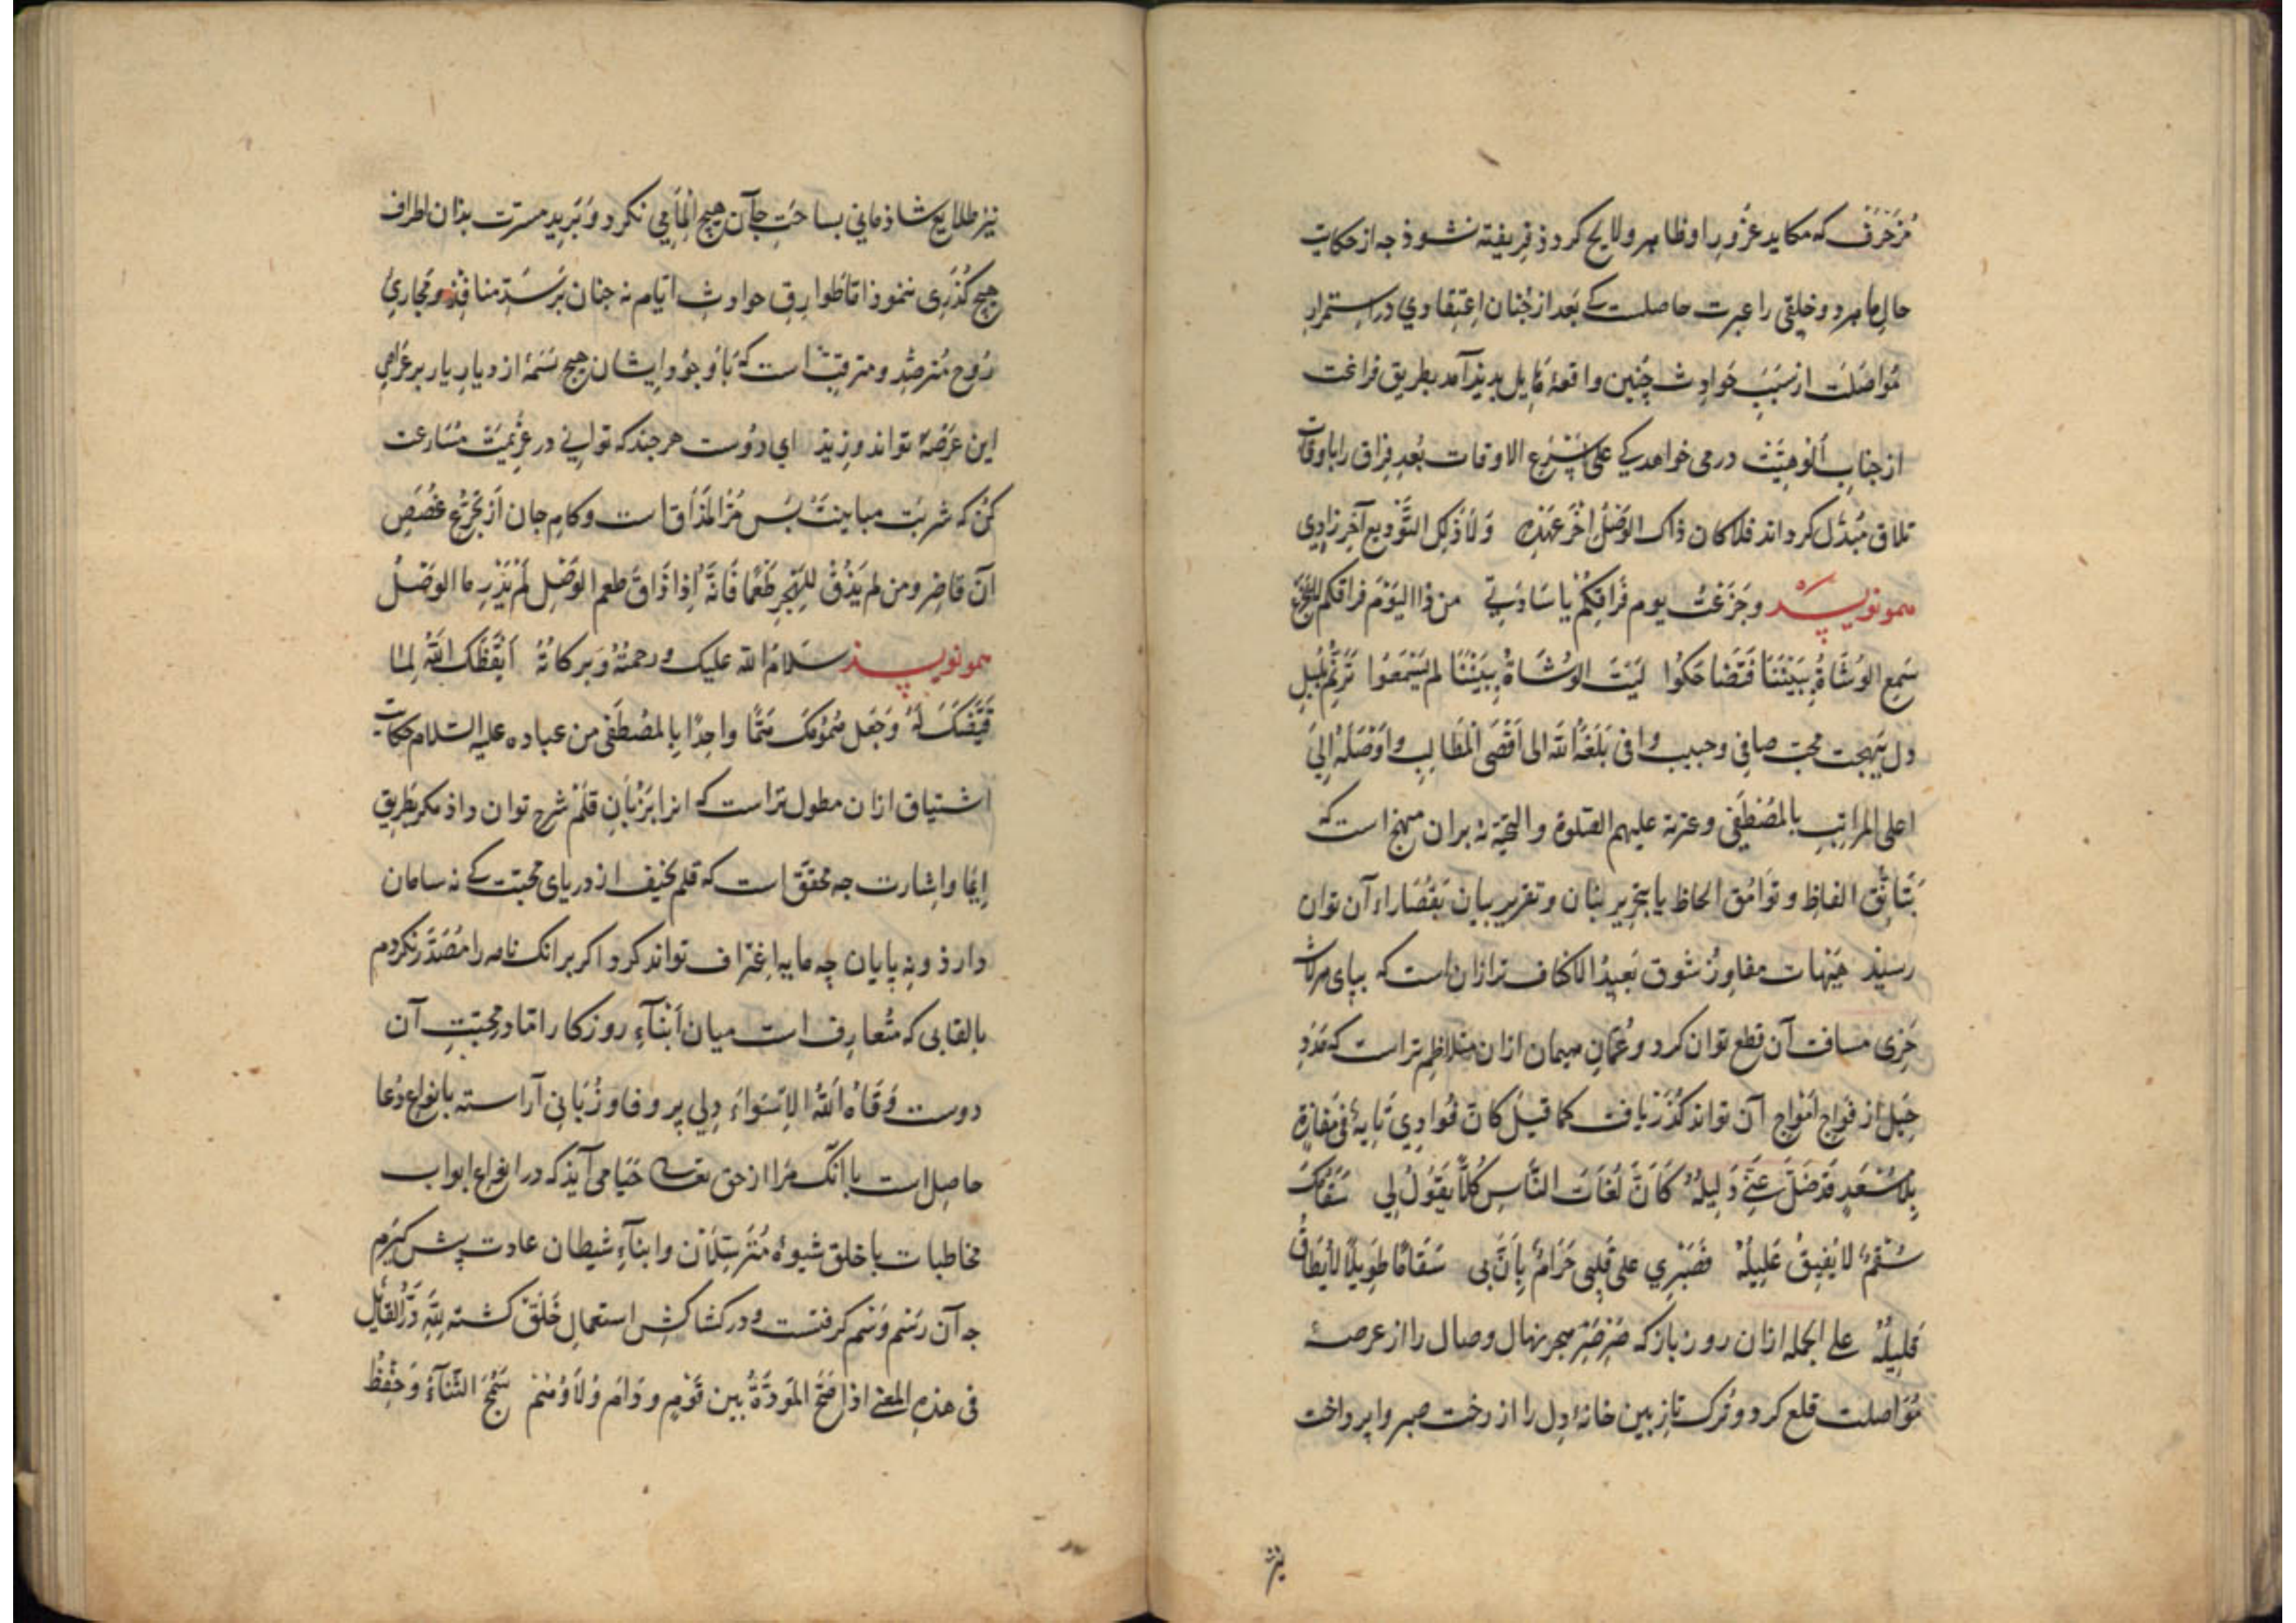 مُزَخْرَف که مکاید غرور را و ظاهر ولایح کردذ فریفته نشوذ جه از حکایت
حال ما هر دو خلیقی را عبرت حاصلست کی بعد از جُنان اعتقادی در استمرار
مواصلت از سَبَبِ حوادث چنین واقعهٔ هایل بدیذ آمد بطریق فراغت
از جناب الوهیّت در می خواهد کی علی اسرع الاوقات بُعدِ فراق را باوقات
تلاق مبُدّل کرداند فلا کان ذاک الوَصْلُ اخر عهدِهِ وَلا ذلک التَّودیع آخر زادِی
همو نویسد وجَزَعْتُ یوم فَراقِکُمْ یا سَادَتی من ذا الیَوْمَ فراقکم
سَمِع الوُشَاةُ بِبَیْنِنَا فَتَضَاحَکُوا لَیْتَ الوُشَاةُ بِبَیْنِنَا لم یَسْمَعُوا تَرَنُّم بُلبلِ
دل بَهجت محبّ صافی وحبیب وافی بَلَغَهُ اللّه الی اَقْصَی الْمَطَالِبِ واَوْصَلَهُ اِلیَ
اعلی المراتِبِ بِالمُصْطَفَی وعترته علیهم الصّلوة والتحیّة نه بران منهج است که
بَتَانُّق الفاظ و توَامُق الحاظ یا بتحریر بنان و تقریر بیان بقُصَاراء آن توان
رسیذ هَیْهات مفاوِزُ شوق بَعیدُ الاکناف تر ازان است که بپای مرکب
خِرَی مسافت آن قطع توان کرد و عُمّانِ هیمان ازان متلاطِم تر است که
حِیَل از فواج اَمْواج آن تواند کُذَرْ یافت کما قیل کَان فُوادِی تَایِهٌ فی مَفازةٍ
بِلاَ سُعْدٍ قَدْ ضَلَّ عَنِّی دَلیلُهُ کَاَنَّ لُغَاتَ النَّاسِ کُلاًّ یَقُولُ لِی سَقَامُکَ
سُقْمٌ لا یُفیقُ عَلِیلُهُ فَصَبْرِی علی قَلبِی حَرَامٌ بِاَنَّ بی سَقَامًا طَوِیلاً لا یُطَاقُ
قَلِیلُهُ علی الجمله ازان روز باز که صَرْصَرِ هجر نهال وصال را از عرصهٔ
مُوَاصلت قلع کرد و تُرک تازِ بین خانهٔ دِل را از رخت صبر وا پرداخت
نیز طلایع شاذمانی بساحَتِ جان هیچ اِلْمامی نکرد و بَریدِ مسرّت بذان اطراف
هیچ کُذَری ننموذ امّا طَوارِق حوادث ایّام نه جنان بَر سَدِّ منافِذ و مَجاریِ
رُوح مُترصِّد و مترقبّ است که بَا وجُوْدِ ایشان هیچ نَسَمهٔ از دیارِ یار بر
این عَرَصهٔ تواند وزیذ ای دُوست هر جند که توانی در عَزِیمَت مُسَارعت
کن که شربَت مباینت بَس مُرُّ المَذَاق است و کام جان اَز تَجَرُّعِ غُصَصِ
آن قاصر ومن لم یَذُقْ لِلهَجر طَعْمًا فَاِنَّهُ اِذا ذَاقَ طعم الوَصْلِ لَمْ یَدْرِ ما الوَصْلُ
همو نویسذ سَلامُ اللّه علیک ورحمتُهُ وَبرکاتُهُ اَیْقَظَک اللّهُ لِمَا
وَجَعَل هُمُوْمَکَ هَمًّا واحِدًا بِالمُصْطَفَی من عباده علیه السَّلام حکایت
اشتیاق ازان مطول تر است که انرا بَزَبَانِ قَلَمْ شرح توان داذ مکر بطریق
اِیمَا واِشارت جه محقق است که قلم نحیف از دریای محبّت کی نه سامان
دارذ و نه پایان چه مایه اغتراف تواند کرد اکر برانک نامه را مُصَدَّر نکردم
بالقابی که مُتعارِف است میان اَبْنآءِ روزکار امّا در محبّتِ آن
دوست وَقَاهُ اللّهُ الاَسْواءَ دِلی پر وفا و زُبَانی آراسته بانواع دُعا
حاصِل است با انک مَرا از حق تعالی حَیَا می آیذ که در انواع ابواب
مخاطبات با خلق شیوهٔ مُتَرَسّلان وابنآءِ شیطان عادت پیش کیرم
جه آن رَسْم وَسْم کرفتست و در کشاکش استعمالِ خَلَقْ کشته لِلّهِ دَرُّ القائل
فی هذه المعنی اذا صَحَّ المَوَدَّةُ بین قَوْمٍ ودَامَ وَلاَوُهُمْ سَمُجَ الثَّنآءُ وَحِفْظُ